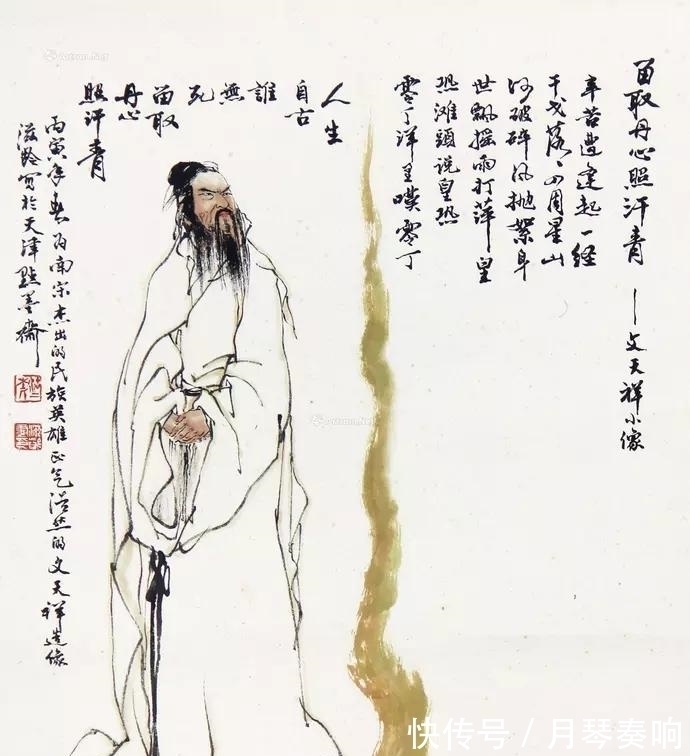 留取丹心照汗青 — 文天祥小像
辛苦遭逢起一经
干戈落々四周星山
河破碎风抛絮身
世飘摇雨打萍皇
恐滩頭说皇恐
零丁洋里嘆零丁
人生
自古
誰
無
死
留取
丹心
照汗青
丙寅年春为南宋杰出的民族英雄正气浩然的文天祥造像
滋龄写於天津點墨齋
快传号 / 月琴奏响